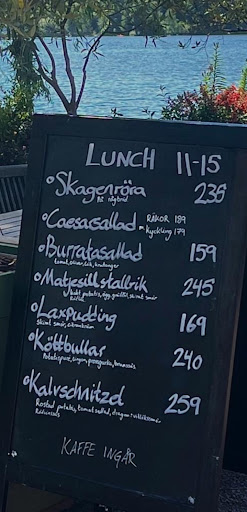 LUNCH 11-15
Skagenröra 235
på rågbröd
Caesarsallad RÄKOR 189
m. Kyckling 179
Burratasallad 159
tomat, oliver, lök, krutonger
Matjesill stallrik 245
kokt potatis, ägg, gräslök, skirat smör
Laxpudding 169
Skirat smör, citronkräm
Köttbullar 240
Potatispuré, lingon, pressgurka,
Kalvschnitzel 259
Rostad potatis, tomatsallad, dragon-
Rödvinssås
KAFFE INGÅR